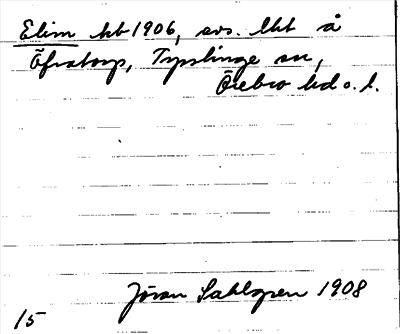 Elim hb 1906, avs. lht å
Öfratorp, Tysslinge sn,
Örebro hd o. l.
Jöran Sahlgren 1908
15